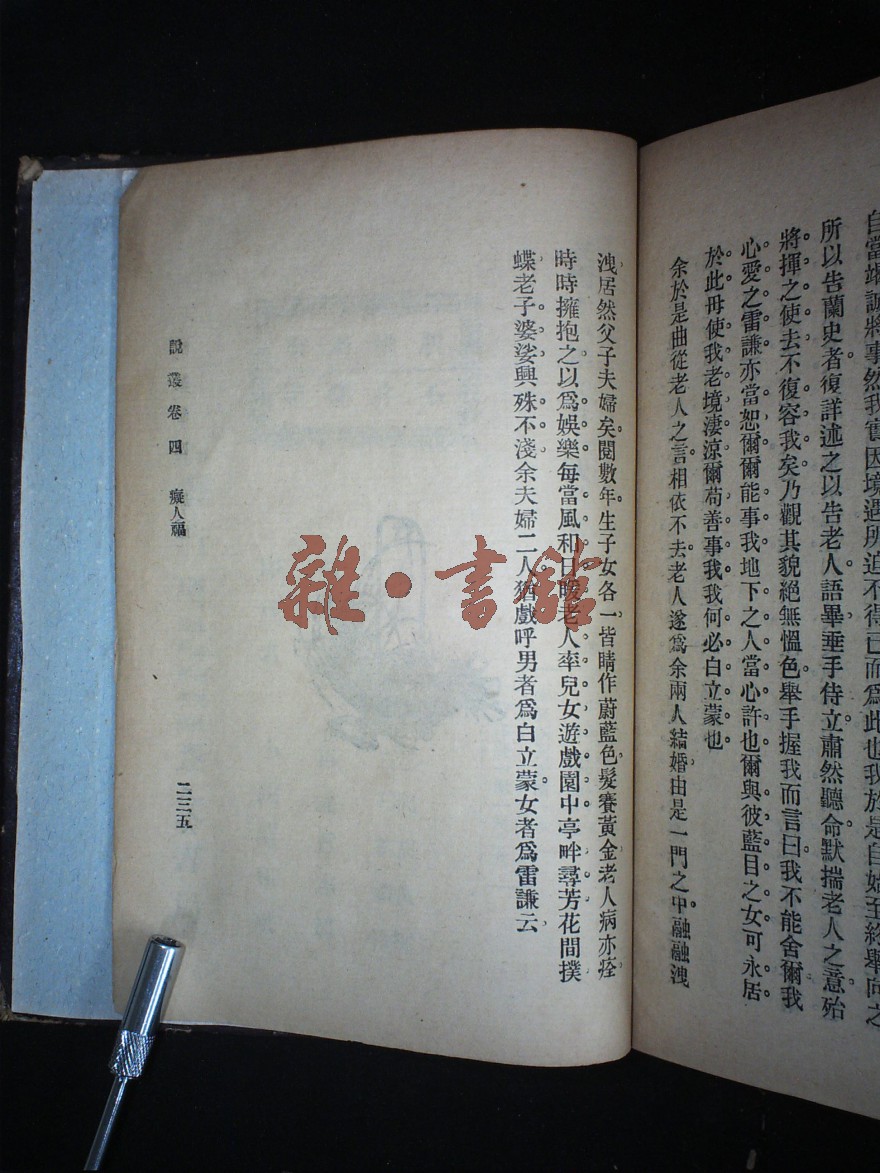 自當竭誠將事然我實因境遇所迫不得已而爲此也我於是自始至終舉向之
所以告蘭史者復詳述之以告老人語畢垂手侍立肅然聽命默揣老人之意殆
將揮之使去不復容我矣乃觀其貌絕無慍色舉手握我而言曰我不能舍爾我
心愛之雷謙亦當恕爾爾能事我地下之人當心許也爾與彼藍目之女可永居
於此毋使我老境淒涼爾苟善事我我何必白立蒙也
余於是曲從老人之言相依不去老人遂爲余兩人結婚由是一門之中融融洩
洩居然父子夫婦矣閱數年生子女各一皆睛作蔚藍色髮賽黃金老人病亦痊
時時擁抱之以爲娛樂每當風和日暖老人率兒女遊戲園中亭畔尋芳花間撲
蝶老子婆娑興殊不淺余夫婦二人猶戲呼男者爲白立蒙女者爲雷謙云
說叢卷四 癡人福
二三五
雜·書館